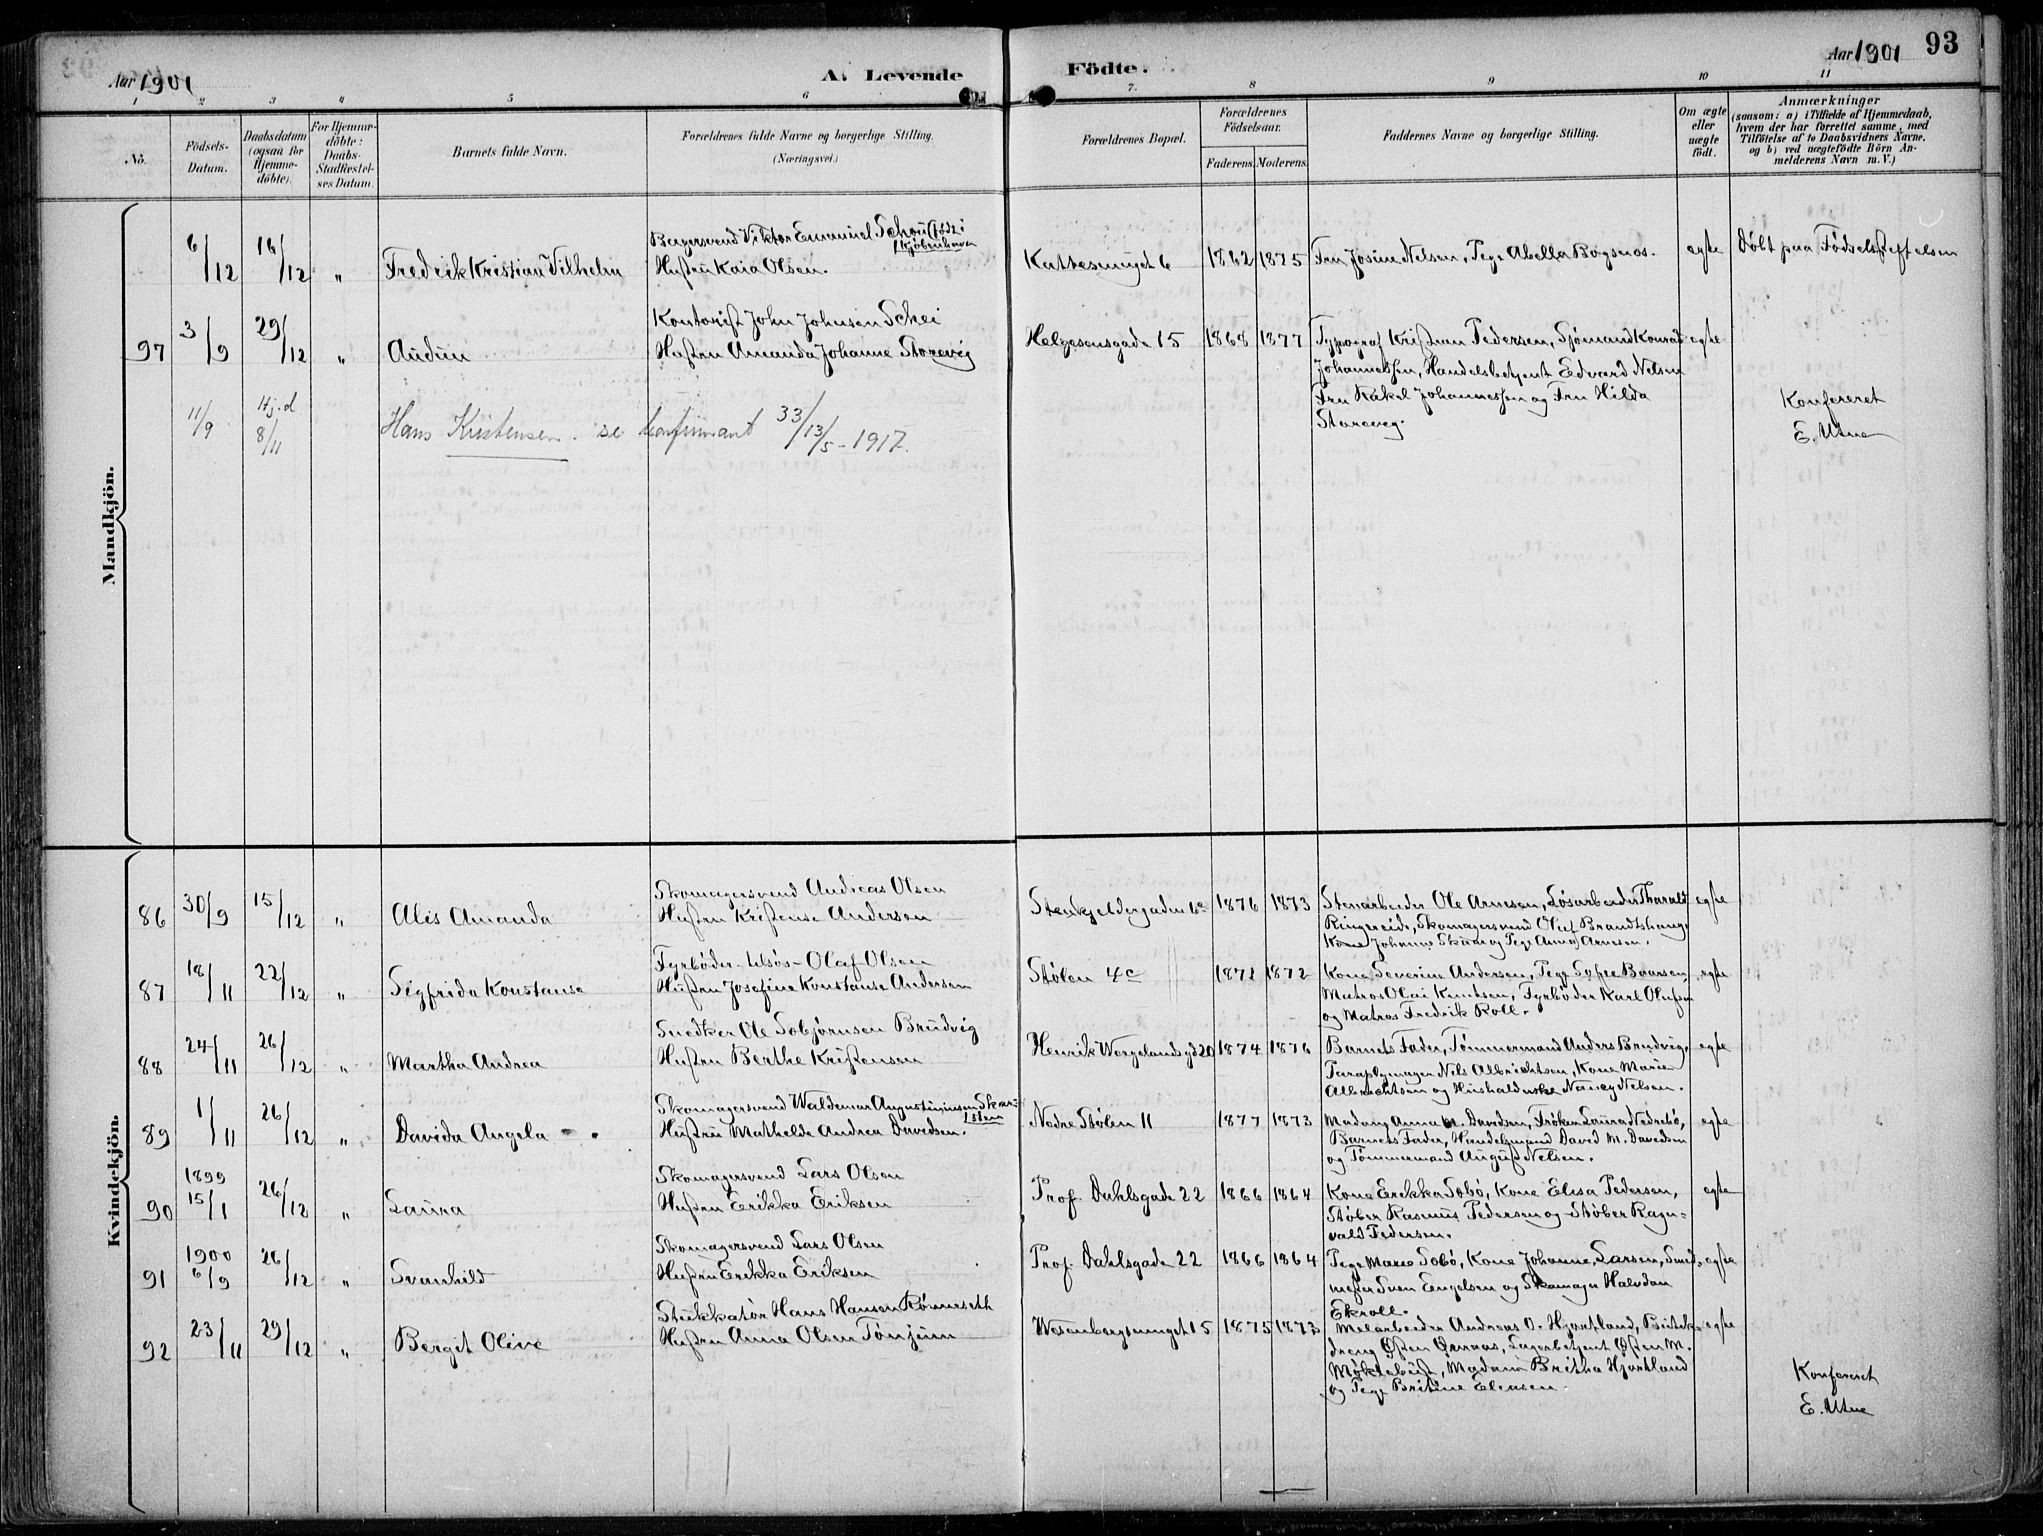 Aar 1901
A. Levende Födte.
Aar 1901 93
1 2 3 4 5 6 7. 8 9 10 11
No.
Födsels-Datum.
Daabsdatum (ogsaa for Hjemme-döbte).
For Hjemme-döbte: Daabs-Stadfæstel-ses Datum.
Barnets fulde Navn.
Forældrenes fulde Navne og borgerlige Stilling.
(Næringsvei.)
Forældrenes Bopæl.
Forældrenes Födselsaar.
Faderens. Moderens.
Faddernes Navne og borgerlige Stilling.
Om ægte eller uægte födt.
Anmærkninger
(saasom: a) i Tilfælde af Hjemmedaab,
hvem der har forrettet samme, med
Tilföielse af to Daabsvidners Navne.
og b) ved uægtefödte Börn An-
melderens Navn m. V.)
Mandkjön.
6/12 16/12 " Fredrik Kristian Vilhelm
Bagersvend Viktor Emanuel Schou (født i Kjøbenhavn
Hustru Kaia Olsen.
Kattesmuget 6 1862 1875 Fru Josine Nelsen, Pege Abella egte Døbt paa Fødselsstiftelsen
97 3/9 29/12 " Audun
Kontorist John Johnsen Schei
Hustru Amanda Johanne Storevig
Helgesensgade 15 1868 1877 Typograf Kristian Pedersen, Sjømand Konrad egte
Johannessen, Handelsbetjent Edvard Nelsen
Fru Rakel Johannessen og Fru Hilda
Storevig.
Konfereret
E. Utne
11/9 Hj.d 8/11 Hans Kristensen. se konfirmant 33/13/5-1917.
Kvindekjön.
86 30/9 15/12 " Alis Amanda
Skomagersvend Andreas Olsen
Hustru Kristense Andersen
1876 1873 Stenarbeider Ole Arnesen, Løsarbeider Tharald egte
Ringereide, Skomagersvend Oluf Brandtshaug,
Kone Johanne og Pege Anna Arnesen.
87 18/11 22/12 " Sigfrida Konstanse
Fyrbøder Olaf Olsen
Hustru Josefine Konstanse Andersen
Stølen 4c 1872 1872 Kone Severine Andersen, Pege Sofie egte
Matros Olai Knutsen, Fyrbøder Karl Olufsen
og Matros Fredrik Roll.
88 24/11 26/12 " Martha Andrea
Snedker Ole Sobjørnsen Brudvig
Hustru Berthe Kristensen
Henrik Wergelandsgd 20 1874 1876 Barnets Fader, Tømmermand Anders Brudvig, egte
Paraplymager Nils Albrichtsen, Kone Marie
Albrichtsen og Husholderske Nancy Nelsen.
89 1/11 26/12 " Davida Angela
Skomagersvend Waldemar
Hustru Mathilde Andrea Davidsen.
Nedre Stølen 11 1877 1873 Madam Anna M. Davidsen, Frøken Laura Nedrebø, egte
Barnets Fader, Handelsmand David M. Davidsen
og Tømmermand August Nelsen.
90 1899 15/1 26/12 " Laura
Skomagersvend Lars Olsen
Hustru Erikka Eriksen
Prof. Dahlsgade 22 1866 1864 Kone Erekka Sobø, Kone Elisa Pedersen, egte
Støber Rasmus Pedersen og Støber Ragn-
vald Pedersen.
91 1900 6/9 26/12 " Svanhild
Skomagersvend Lars Olsen
Hustru Erikka Eriksen
Prof. Dahlsgade 22 1866 1864 Pege Marie Sobø, Kone Johanne Larsen, Smed- egte
mester Sven Engelsen og Skomager Halvdan
Ekroll.
92 23/11 29/12 " Bergit Olive
Stukkatør Hans Hansen Rømeseth
Hustru Anna Olsen Tønjum
Wesenbergsmuget 15 1875 1873 Melarbeider Andreas O. Hjortland, egte
dreng Østen, Lagerbetjent Østen M.
Møklebust, Madam Britha Hjortland
og Pege Britine Elensen.
Konfereret
E. Utne